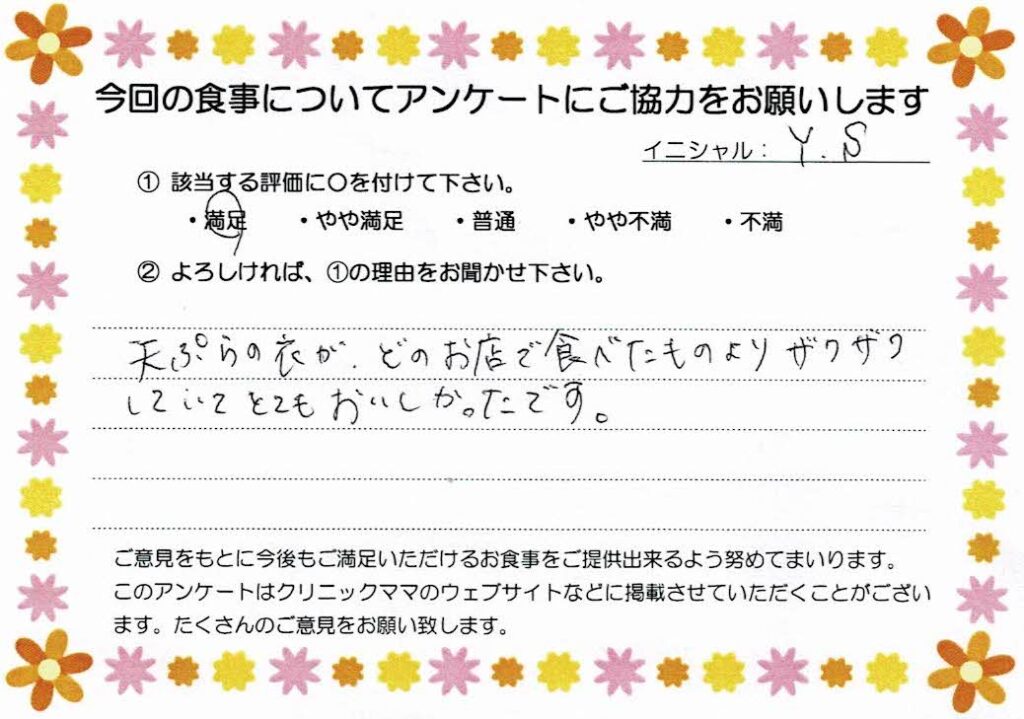 今回の食事についてアンケートにご協力をお願いします
イニシャル： Y.S
① 該当する評価に〇を付けて下さい。
・満足 ・やや満足 ・普通 ・やや不満 ・不満
② よろしければ、①の理由をお聞かせ下さい。
天ぷらの衣が、どのお店で食べたものよりザクザク
していてとてもおいしかったです。
ご意見をもとに今後もご満足いただけるお食事をご提供出来るよう努めてまいります。
このアンケートはクリニックママのウェブサイトなどに掲載させていただくことがござい
ます。たくさんのご意見をお願い致します。